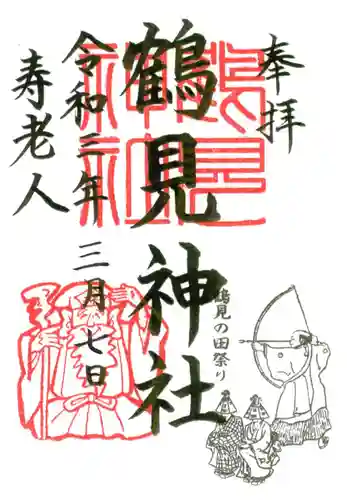 奉拝
鶴見神社
令和三年三月七日
寿老人
鶴見神社
鶴見の田祭り